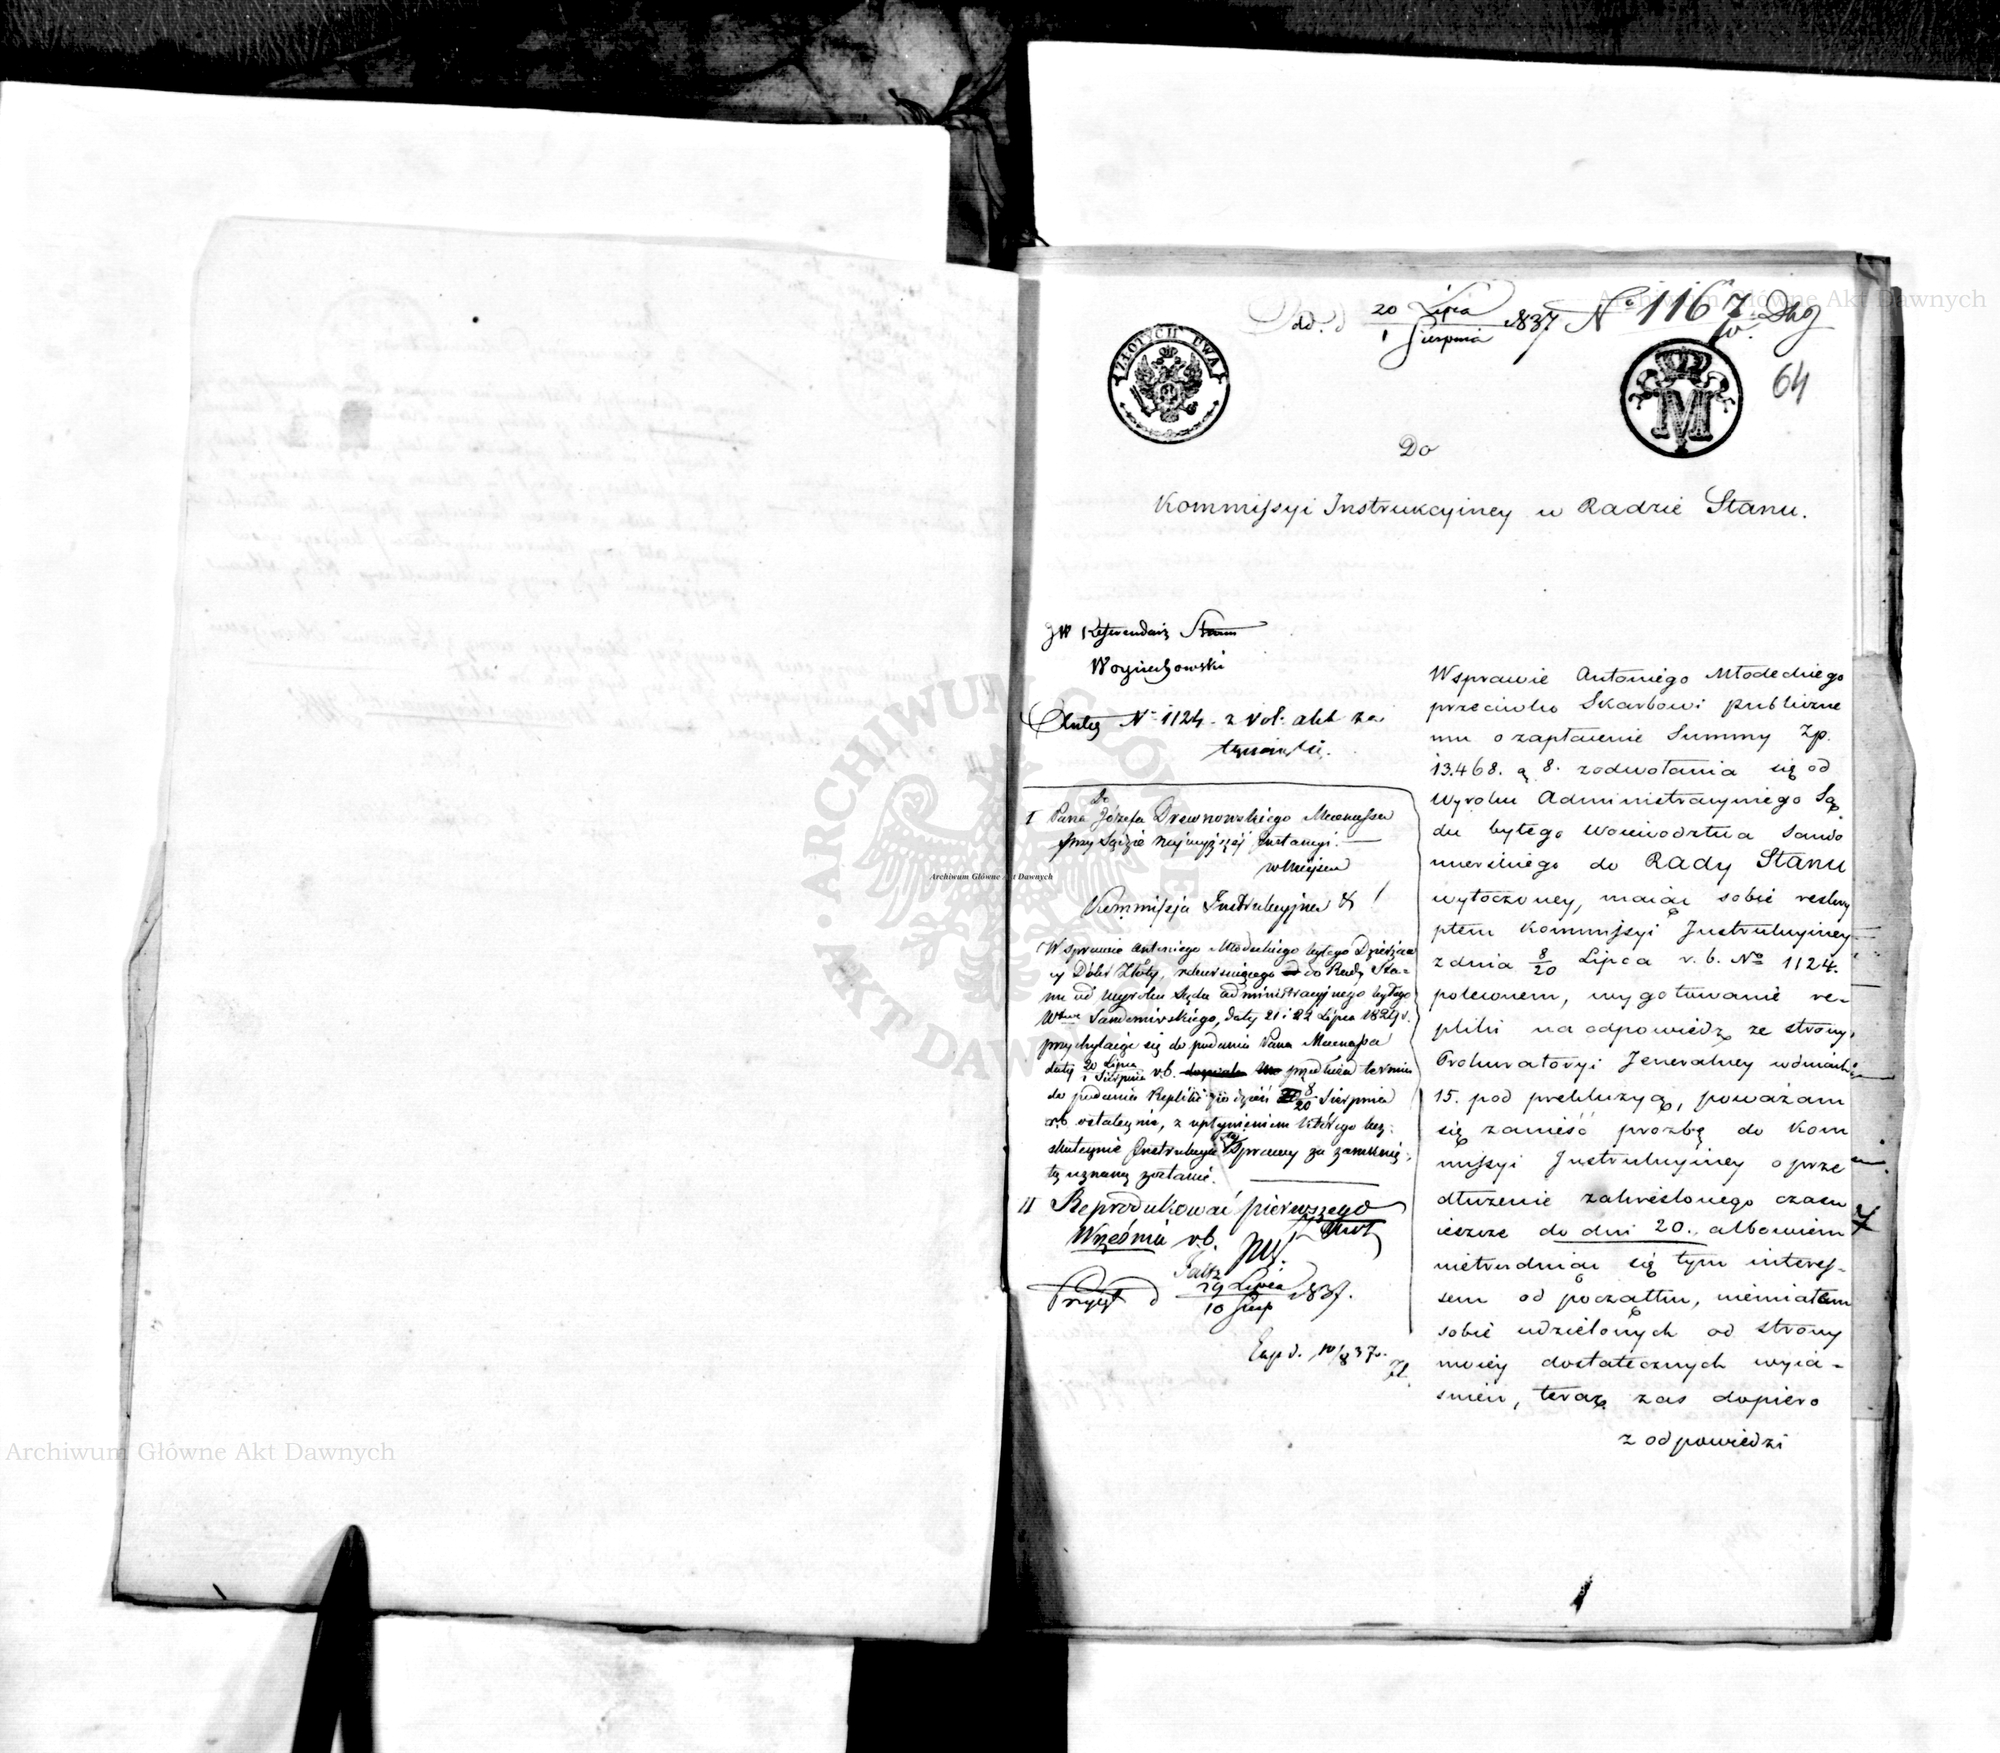 dd. 20 Lipca / 1 Sierpnia 1837 No 1167
64
ZŁOTYCH DWA
M
Do
Kommissyi Instrukcyiney w Radzie Stanu.
JW Referendarz Stanu
Woyciechowski
No 1124 z Vol: akt za
I Do Pana Józefa Drewnowskiego Mecenasa
przy Sądzie Najwyższej Instancyi.
w Miejscu
Kommissja Instrukcyjna &
W sprawie Antoniego Młodeckiego byłego Dzierżaw
cy Dóbr Złoty, rekursuiącego do Rady Sta-
nu od wyroku Sądu administracyjnego byłego
Wdztwa Sandomirskiego, daty 21 i 22 Lipca 1829 r.
przychylaiąc się do podania Pana Mecenasa
daty 20 Lipca / 1 Sierpnia r.b. przedłuża termin
do podania Repliki po dzień 8/20 Sierpnia
r.b. ostatecznie, z upłynieniem którego bez-
skutecznie Instrukcya Sprawy za zamknię-
tą uznaną zostanie.
II Reprodukować pierwszego
Września r.b.
29 Lipca / 10 Sierp 1837.
Exp d. 10/8 37.
W sprawie Antoniego Młodeckiego
przeciwko Skarbowi publiczne
mu o zapłacenie Summy Zp.
13.468. g 8. z odwołania się od
Wyroku Administracyinego Są
du byłego Woiewodztwa Sando
mierskiego do Rady Stanu
wytoczoney, maiąc sobie reskry
ptem Kommissyi Instrukcyiney
z dnia 8/20 Lipca r. b. No 1124.
poleconem, wygotowanie re-
pliki na odpowiedź ze strony
Prokuratoryi Jeneralney w dniach
15. pod prekluzyą, poważam
się zanieść prozbę do Kom
missyi Instrukcyiney o prze
dłużenie zakreślonego czasu
ieszcze do dni 20., albowiem
nietrudniąc się tym interes-
sem od początku, niemiałem
sobie udzielonych od strony
moiéy dostatecznych wyia-
śnień, teraz zas dopiero
z odpowiedzi
Archiwum Główne Akt Dawnych
Archiwum Główne Akt Dawnych
Archiwum Główne Akt Dawnych
ARCHIWUM GŁÓWNE AKT DAWNYCH